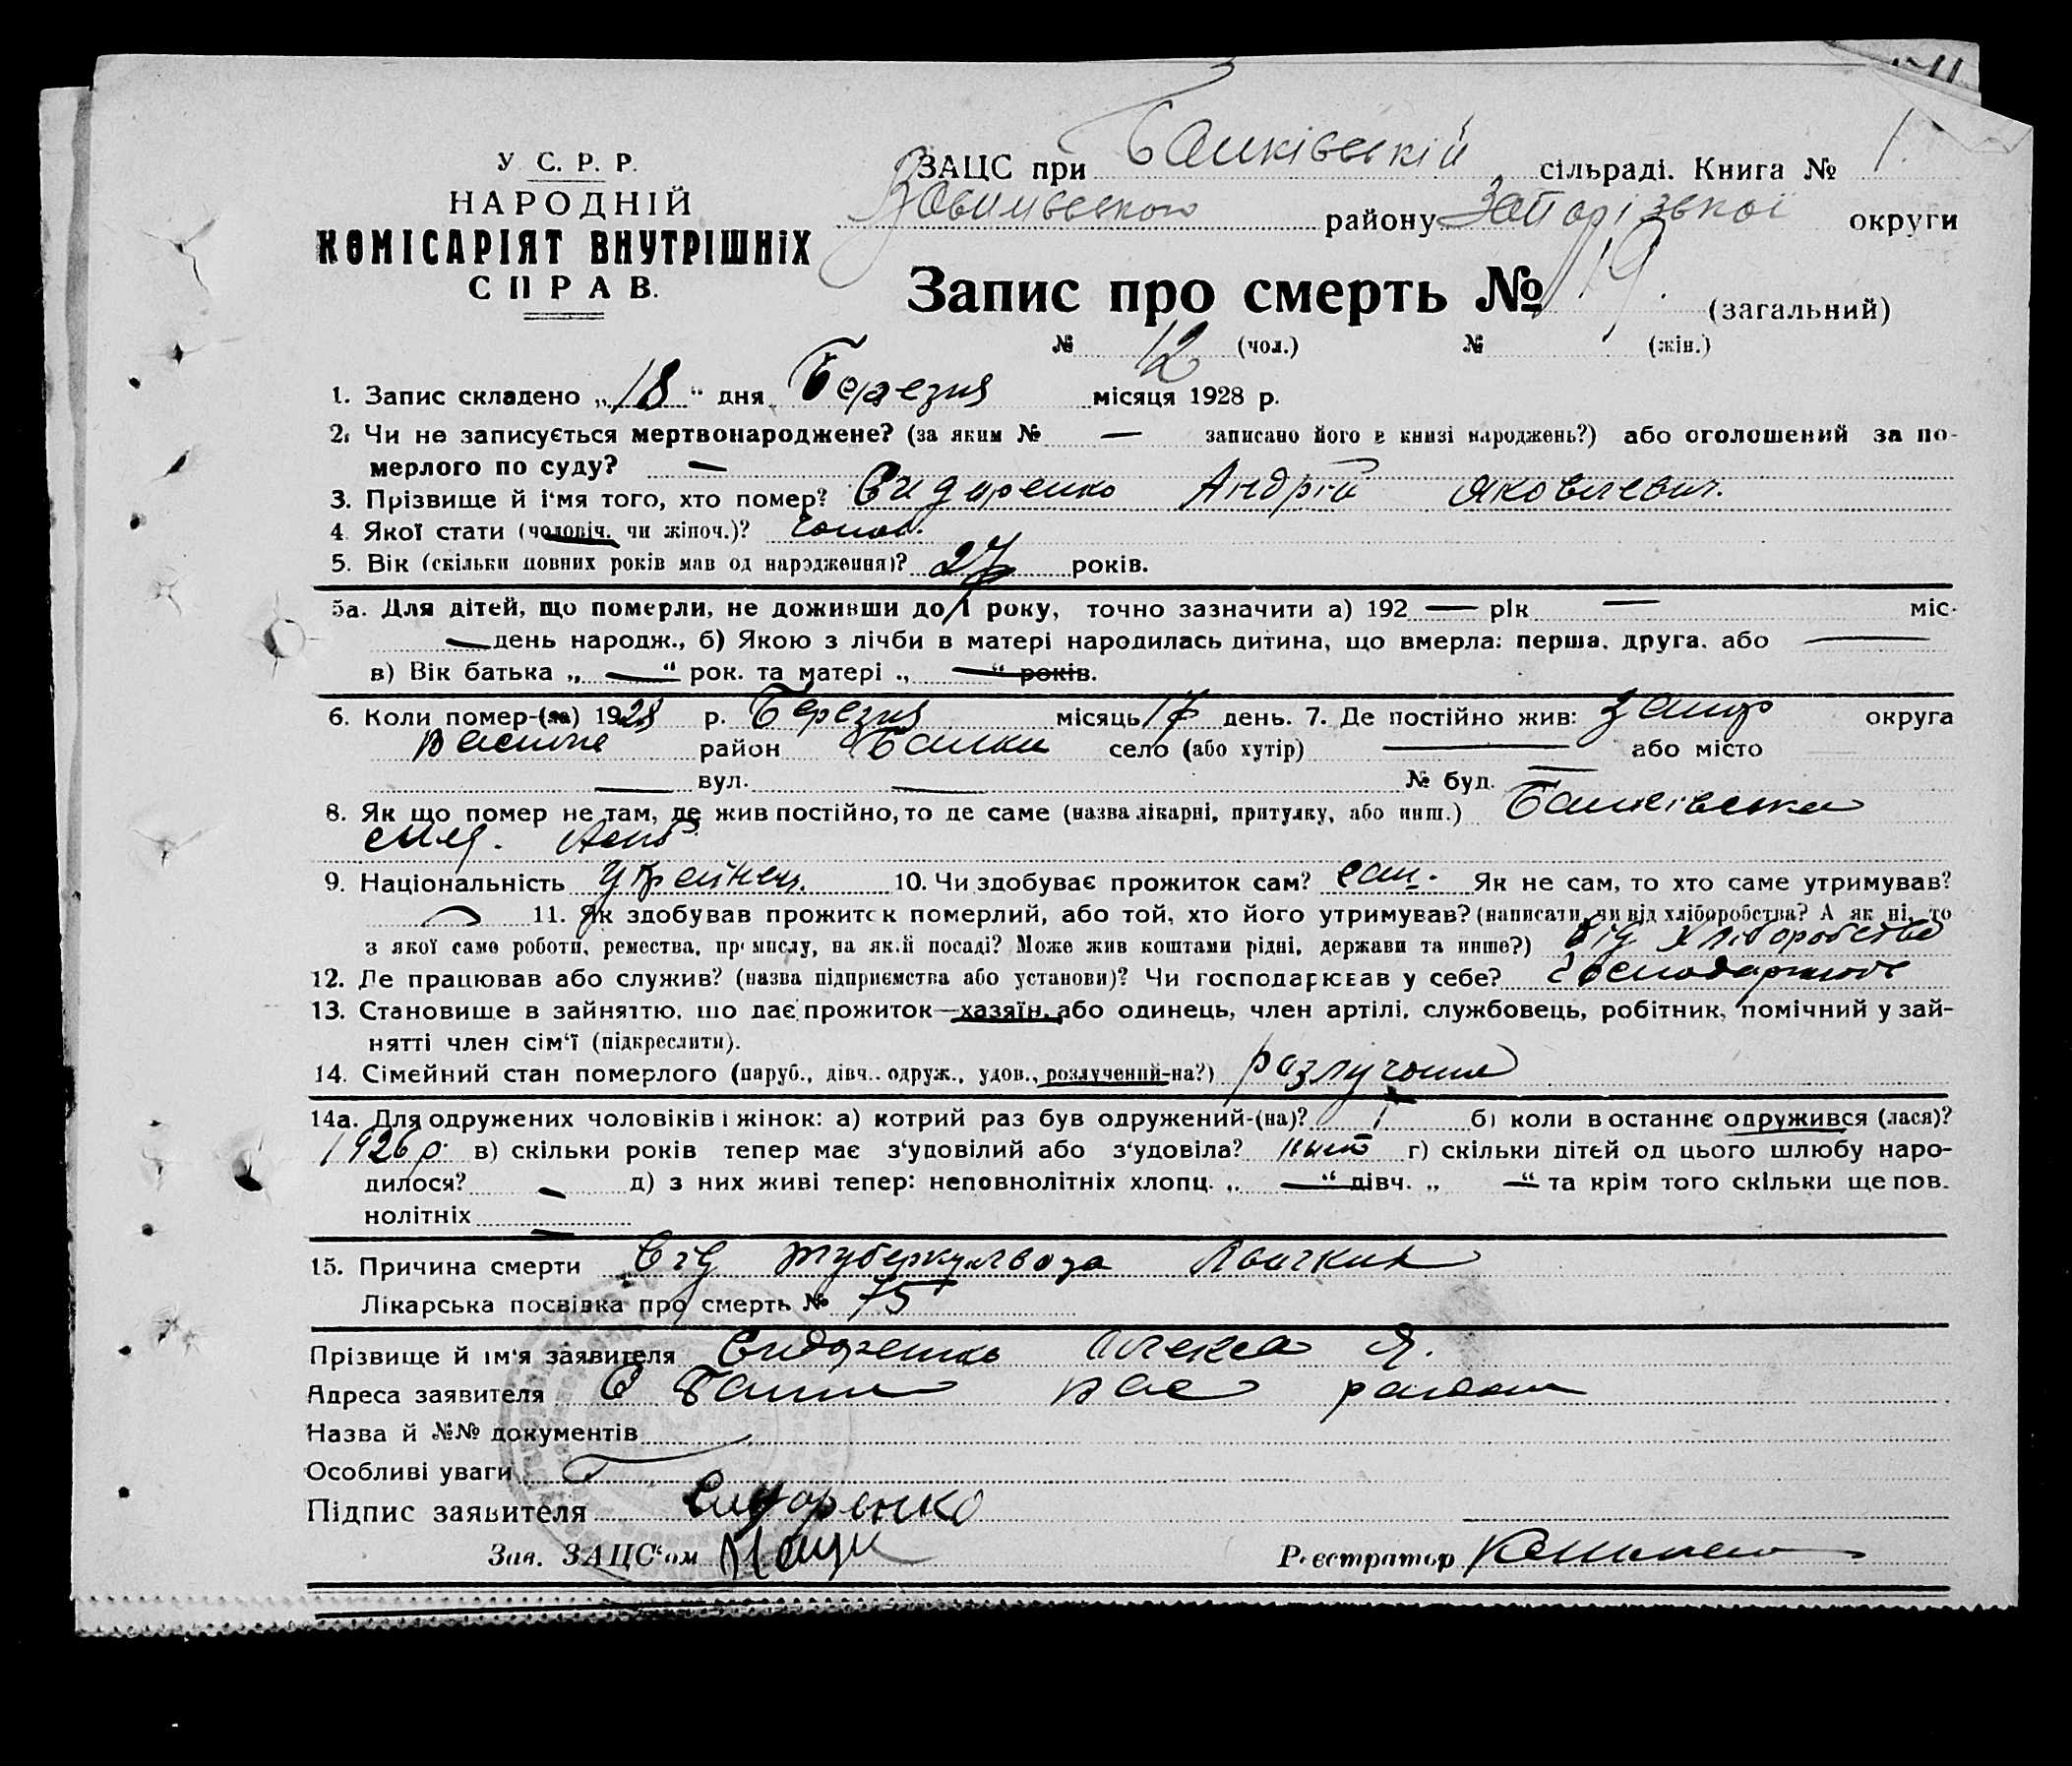 У. С. Р. Р.
НАРОДНІЙ
КОМІСАРІЯТ ВНУТРІШНІХ
СПРАВ.
ЗАЦС при Балківській сільраді. Книга № 1.
району Запорізької округи
Запис про смерть № 19. (загальний)
№ 12 (чол.) № (жін.)
1. Запис складено „18" дня Березня місяця 1928 р.
2. Чи не записується мертвонароджене? (за яким № — записано його в книзі народжень?) або оголошений за по-
мерлого по суду? —
3. Прізвище й ім'я того, хто помер? Сидоренко Андрій Яковлевич.
4. Якої стати (чоловіч. чи жіноч.)? чолов.
5. Вік (скільки повних років мав од народження)? 27 років.
5а. Для дітей, що померли, не доживши до 1 року, точно зазначити а) 192 — рік — міс.
— день народж., б) Якою з лічби в матері народилась дитина, що вмерла: перша, друга, або —
в) Вік батька „ — " рок. та матері „ — " років.
6. Коли помер-(ла) 1928 р. Березня місяць 17 день. 7. Де постійно жив: Запор округа
Василів район Балки село (або хутір) — або місто
— вул. — № буд. —
8. Як що помер не там, де жив постійно, то де саме (назва лікарні, притулку, або инш.) Балківська
9. Національність Україн 10. Чи здобуває прожиток сам? сам. Як не сам, то хто саме утримував?
— 11. Як здобував прожиток померлий, або той, хто його утримував? (написати, чи від хліборобства? А як ні, то
з якої саме роботи, ремества, промислу, на якій посаді? Може жив коштами рідні, держави та инше?) Від Хліборобства
12. Де працював або служив? (назва підприємства або установи)? Чи господарював у себе?
13. Становище в зайняттю, що дає прожиток—хазяїн, або одинець, член артілі, службовець, робітник, помічний у зай-
нятті член сім'ї (підкреслити).
14. Сімейний стан померлого (паруб., дівч., одруж., удов., розлучений-на?)
14а. Для одружених чоловіків і жінок: а) котрий раз був одружений-(на)? 1 б) коли в останнє одружився (лася)?
1926 р. в) скільки років тепер має з'удовілий або з'удовіла? г) скільки дітей од цього шлюбу наро-
дилося? — д) з них живі тепер: неповнолітніх хлопц. „ — " дівч. „ — " та крім того скільки ще пов-
нолітніх —
15. Причина смерти Від туберкульоза
Лікарська посвідка про смерть № 75
Прізвище й ім'я заявителя Сидоренко Олекса Я.
Адреса заявителя С Балки Вас района
Назва й №№ документів
Особливі уваги
Підпис заявителя Сидоренко
Зав. ЗАЦС'ом Реєстратор